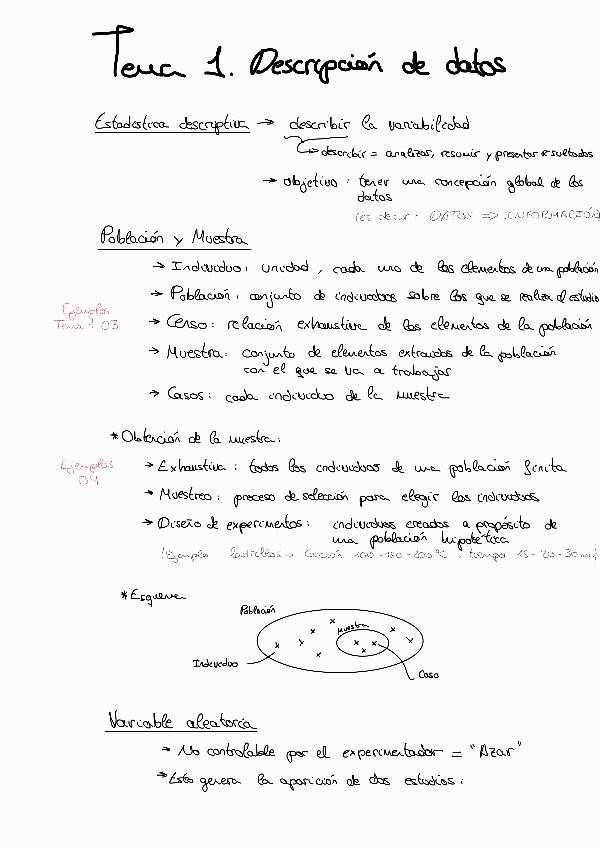 Tema 1. Descripción de datos
Estadística descriptiva → describir la variabilidad
→ describir = analizar, resumir y presentar resultados
→ Objetivo: tener una concepción global de los
datos
(es decir: DATOS => INFORMACIÓN)
Población y Muestra
→ Individuo: unidad, cada uno de los elementos de una población
→ Población: conjunto de individuos sobre los que se realiza el estudio
Ejemplos
Tema 1 03
→ Censo: relación exhaustiva de los elementos de la población
→ Muestra: conjunto de elementos extraídos de la población
con el que se va a trabajar
→ Casos: cada individuo de la muestra
* Obtención de la muestra:
Ejemplos
04
→ Exhaustiva: todos los individuos de una población finita
→ Muestreo: proceso de selección para elegir los individuos
→ Diseño de experimentos: individuos creados a propósito de
una población hipotética
(Ejemplo ladrillos → Cocción 100-150-200ºC, tiempo 15-20-30 min)
* Esquema
Población
Muestra
Individuo
Caso
Variable aleatoria
→ No controlable por el experimentador = "Azar"
→ Esto genera la aparición de dos estudios: